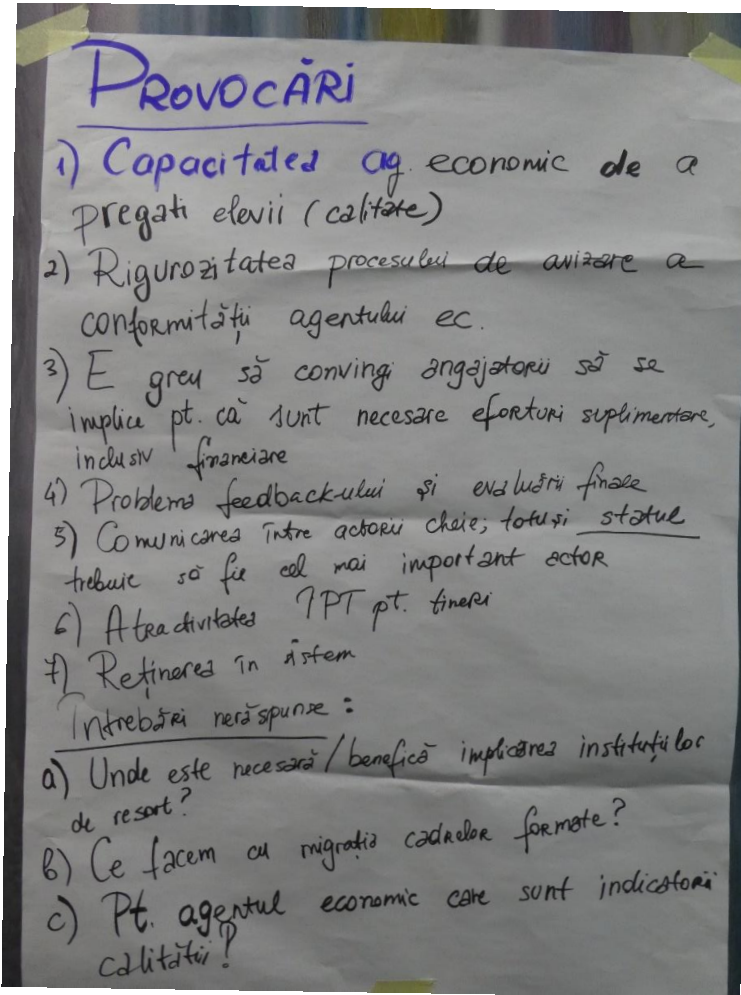 PROVOCĂRI
1) Capacitatea ag. economic de a
pregati elevii (calitate)
2) Rigurozitatea procesului de avizare a
conformității agentului ec.
3) E greu să convingi angajatorii să se
implice pt. că sunt necesare eforturi suplimentare,
inclusiv financiare
4) Problema feedback-ului și evaluării finale
5) Comunicarea între actorii cheie; totuși statul
trebuie să fie cel mai important actor
6) Atractivitatea ÎPT pt. tineri
7) Reținerea în sistem
Întrebări nerăspunse:
a) Unde este necesară/benefică implicarea instituțiilor
de resort?
b) Ce facem cu migrația cadrelor formate?
c) Pt. agentul economic care sunt indicatorii
calității?